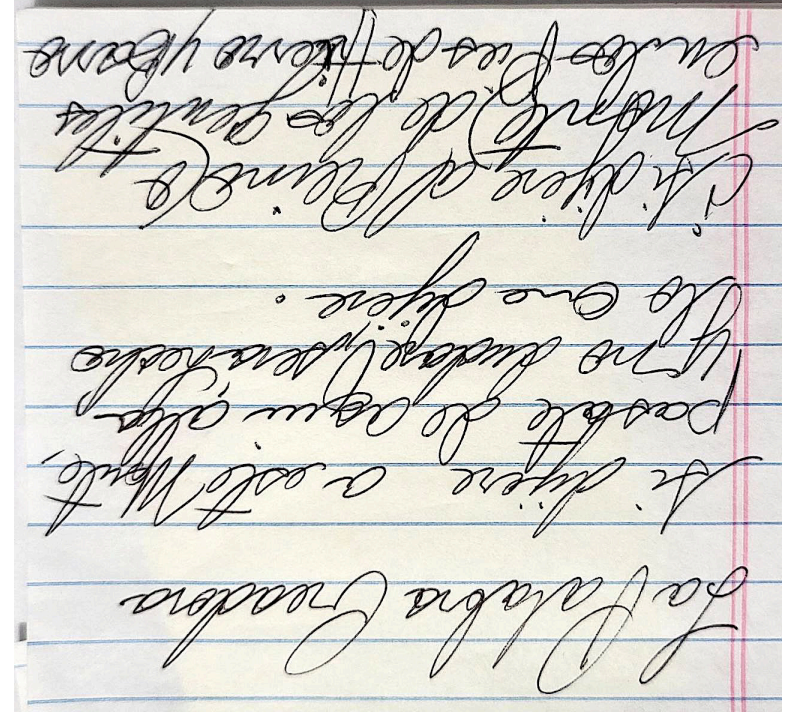 La Palabra Creadora
si dijere a este Monte,
pasate de aqui alla
y no dudase, sera hecho
Y lo Que dijere.
i si dijere al Reino (o
Monte) de los gentiles
en los Pies de Hierro y Barro